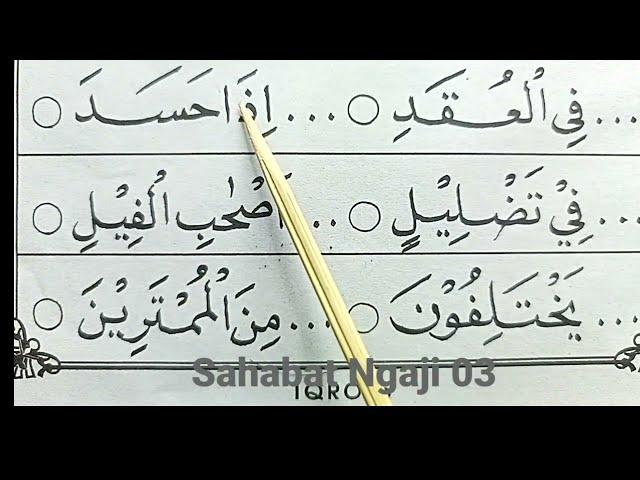 ... فِي الْعُقَدِ ○ ... اِذَا حَسَدَ ○
... فِيْ تَضْلِيْلٍ ○ ... اَصْحٰبِ الْفِيْلِ ○
... يَخْتَلِفُوْنَ ○ ... مِنَ الْمُمْتَرِيْنَ ○
Sahabat Ngaji 03
IQRO